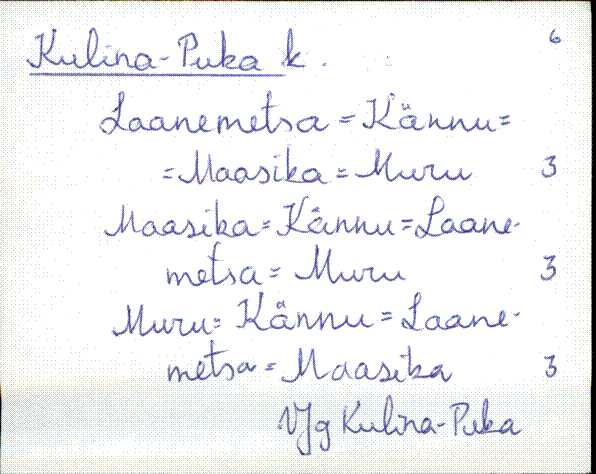 Kulina-Puka k. 6
Laanemetsa = Kännu =
= Maasika = Muru 3
Maasika = Kännu = Laane-
metsa = Muru 3
Muru = Kännu = Laane-
metsa = Maasika 3
Vjg Kulina-Puka